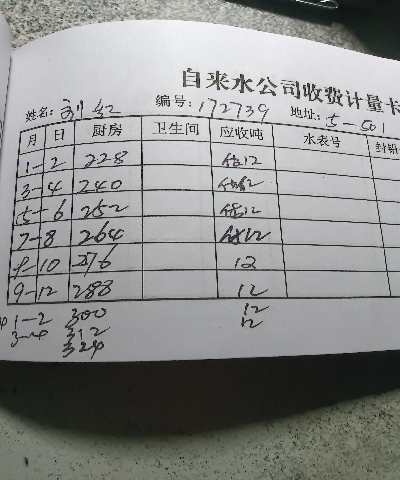 自来水公司收费计量卡
姓名: 刘红 编号: 172739 地址: 5-501
月 日 厨房 卫生间 应收吨 水表号 封铅
1-2 228 12
3-4 240 12
5-6 252 12
7-8 264 12
9-10 276 12
9-12 288 12
1-2 300 12
3-4 312 12
324